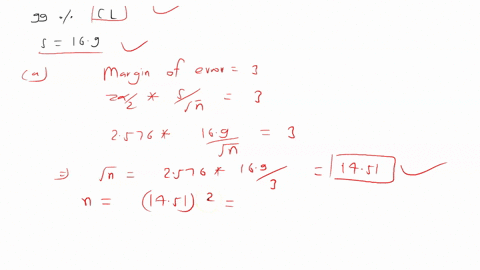 99 % CL
s = 16.9
(a) Margin of error = 3
zα/2 * s/√n = 3
2.576 * 16.9/√n = 3
⇒ √n = 2.576 * 16.9/3 = 14.51
n = (14.51)² =